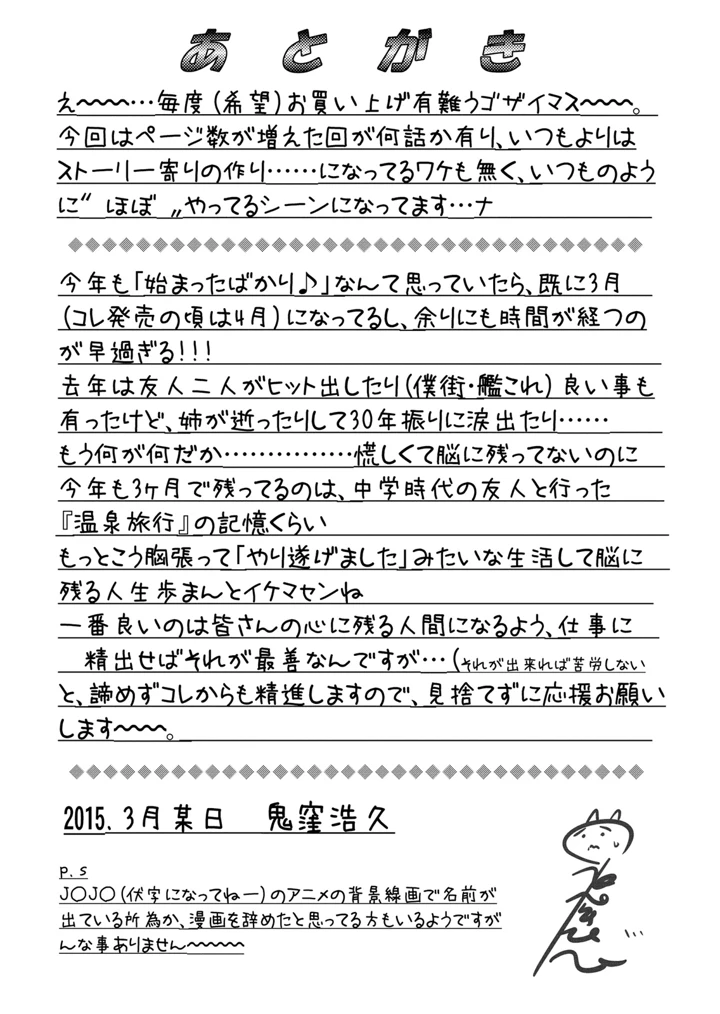 あとがき
え〜〜〜…毎度(希望)お買い上げ有難うゴザイマス〜〜〜。
今回はページ数が増えた回が何話か有り、いつもよりは
ストーリー寄りの作り……になってるワケも無く、いつものよう
に“ほぼ„やってるシーンになってます…ナ
今年も「始まったばかり♪」なんて思っていたら、既に3月
(コレ発売の頃は4月)になってるし、余りにも時間が経つの
が早過ぎる!!!
去年は友人二人がヒット出したり(僕街・艦これ)良い事も
有ったけど、姉が逝ったりして30年振りに涙出たり……
もう何が何だか……………慌しくて脳に残ってないのに
今年も3ヶ月で残ってるのは、中学時代の友人と行った
『温泉旅行』の記憶くらい
もっとこう胸張って「やり遂げました」みたいな生活して脳に
残る人生歩まんとイケマセンね
一番良いのは皆さんの心に残る人間になるよう、仕事に
精出せばそれが最善なんですが…(それが出来れば苦労しない
と、諦めずコレからも精進しますので、見捨てずに応援お願い
します〜〜〜。
2015.3月某日 鬼窪浩久
p.s
J〇J〇(伏字になってねー)のアニメの背景線画で名前が
出ている所為か、漫画を辞めたと思ってる方もいるようですが
んな事ありません〜〜〜〜